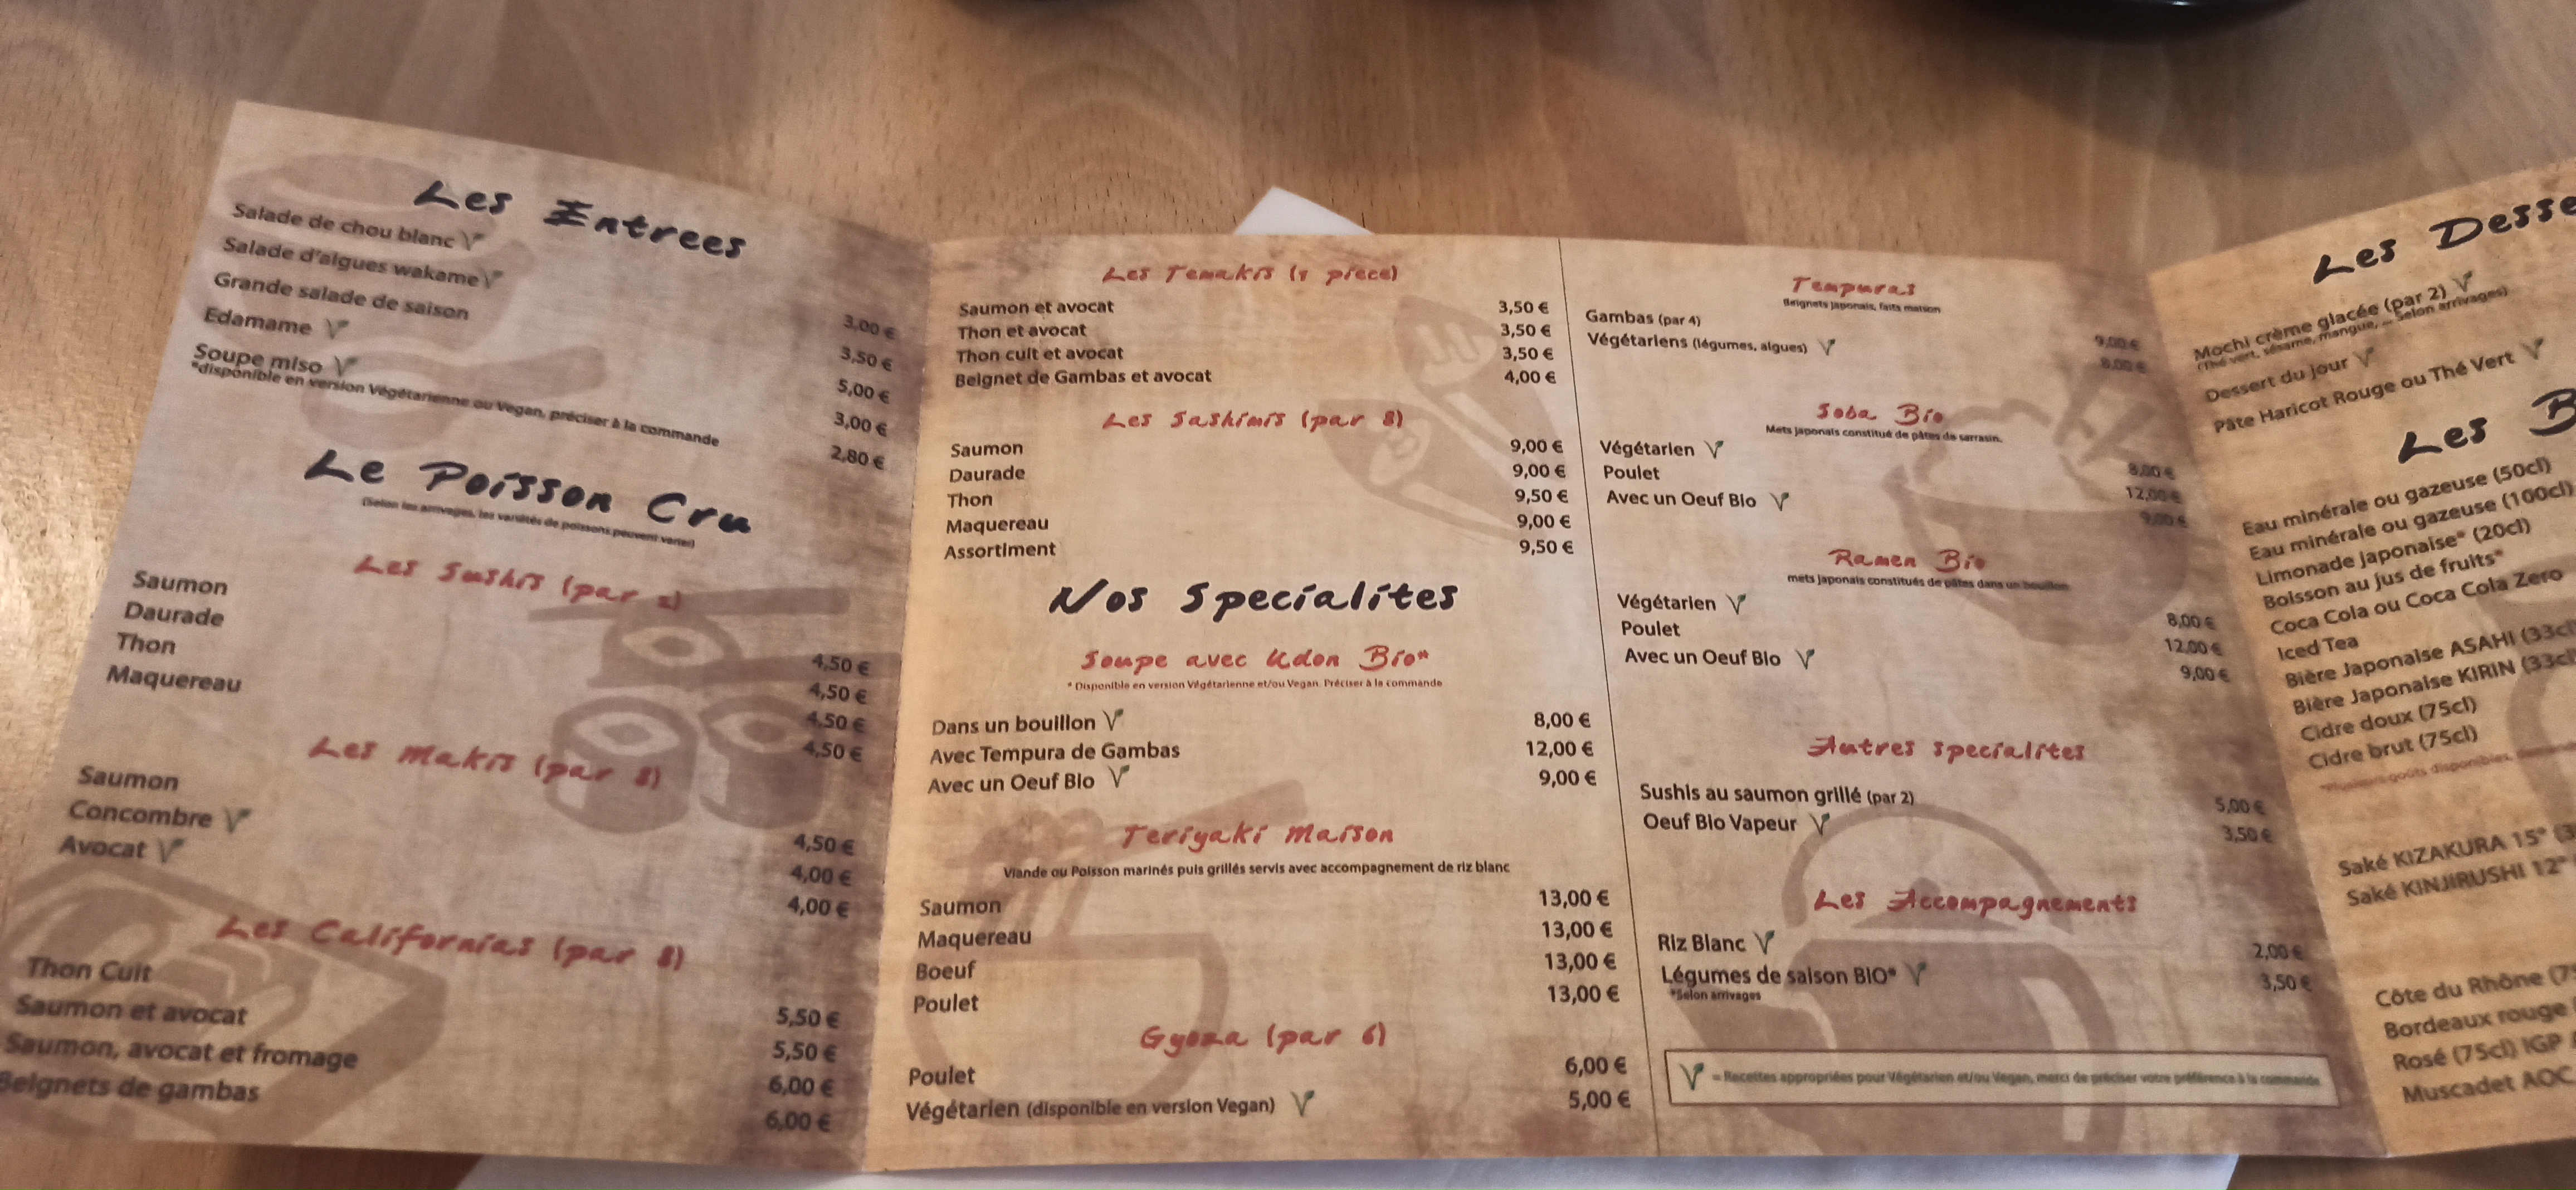 Les Entrees
Salade de chou blanc 3,00 €
Salade d'algues wakame 3,50 €
Grande salade de saison 5,00 €
Edamame 3,00 €
Soupe miso 2,80 €
*disponible en version Végétarienne ou Vegan, préciser à la commande
Le Poisson Cru
(Selon les arrivages, les variétés de poissons peuvent varier)
Les Sushis (par 2)
Saumon 4,50 €
Daurade 4,50 €
Thon 4,50 €
Maquereau 4,50 €
Les Makis (par 8)
Saumon 4,50 €
Concombre 4,00 €
Avocat 4,00 €
Les Californias (par 8)
Thon Cuit 5,50 €
Saumon et avocat 5,50 €
Saumon, avocat et fromage 6,00 €
Beignets de gambas 6,00 €
Les Temakis (1 piece)
Saumon et avocat 3,50 €
Thon et avocat 3,50 €
Thon cuit et avocat 3,50 €
Beignet de Gambas et avocat 4,00 €
Les Sashimis (par 8)
Saumon 9,00 €
Daurade 9,00 €
Thon 9,50 €
Maquereau 9,00 €
Assortiment 9,50 €
Nos Specialites
Soupe avec Udon Bio*
* Disponible en version Végétarienne et/ou Vegan. Préciser à la commande
Dans un bouillon 8,00 €
Avec Tempura de Gambas 12,00 €
Avec un Oeuf Bio 9,00 €
Teriyaki Maison
Viande ou Poisson marinés puis grillés servis avec accompagnement de riz blanc
Saumon 13,00 €
Maquereau 13,00 €
Boeuf 13,00 €
Poulet 13,00 €
Gyoza (par 6)
Poulet 6,00 €
Végétarien (disponible en version Vegan) 5,00 €
Tempuras
Beignets japonais, faits maison
Gambas (par 4) 9,00 €
Végétariens (légumes, algues) 8,00 €
Soba Bio
Mets japonais constitué de pâtes de sarrasin.
Végétarien 8,00 €
Poulet 12,00 €
Avec un Oeuf Bio 9,00 €
Ramen Bio
mets japonais constitués de pâtes dans un bouillon
Végétarien 8,00 €
Poulet 12,00 €
Avec un Oeuf Bio 9,00 €
Autres specialites
Sushis au saumon grillé (par 2) 5,00 €
Oeuf Bio Vapeur 3,50 €
Les Accompagnements
Riz Blanc 2,00 €
Légumes de saison BIO* 3,50 €
*Selon arrivages
= Recettes appropriées pour Végétarien et/ou Vegan, merci de préciser votre préférence à la commande
Les Desse
Mochi crème glacée (par 2)
(Thé vert, sésame, mangue, ... Selon arrivages)
Dessert du jour
Pâte Haricot Rouge ou Thé Vert
Les B
Eau minérale ou gazeuse (50cl)
Eau minérale ou gazeuse (100cl)
Limonade japonaise* (20cl)
Boisson au jus de fruits*
Coca Cola ou Coca Cola Zero
Iced Tea
Bière Japonaise ASAHI (33cl)
Bière Japonaise KIRIN (33cl
Cidre doux (75cl)
Cidre brut (75cl)
*Plusieurs goûts disponibles,
Saké KIZAKURA 15° (3
Saké KINJIRUSHI 12°
Côte du Rhône (7
Bordeaux rouge
Rosé (75cl) IGP
Muscadet AOC